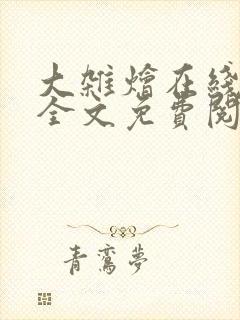 大雜燴在綫
全文免費閱
青鸞夢